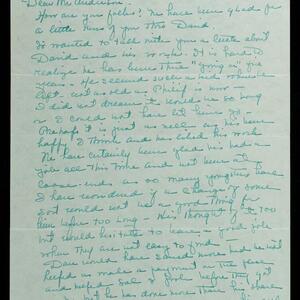 Dear Mr. Anderson:
How are you folks? We have been glad for
a little news of you Mrs. David
I wanted to talk with you a little about
David and his work. It is hard to
realize he has been there "going on" five
years. He seemed such a
left not as old as Philip is now —
I did not dream it would be so long
or I could not have let him go
Perhaps it is just as well as he has been
happy I think and has liked his work
We have certainly been glad he had a
you all this time and not been at
loose ends as so many youngsters have
I have wondered if a change of some
sort would not be a good thing for
him before too long — He's thought of it too
but would hesitate to leave a good job
when they are not easy to find
Dave could have saved more had he not
helped us make a payment on the place
and helped Sal &amp; before they got
but he has done more than his share